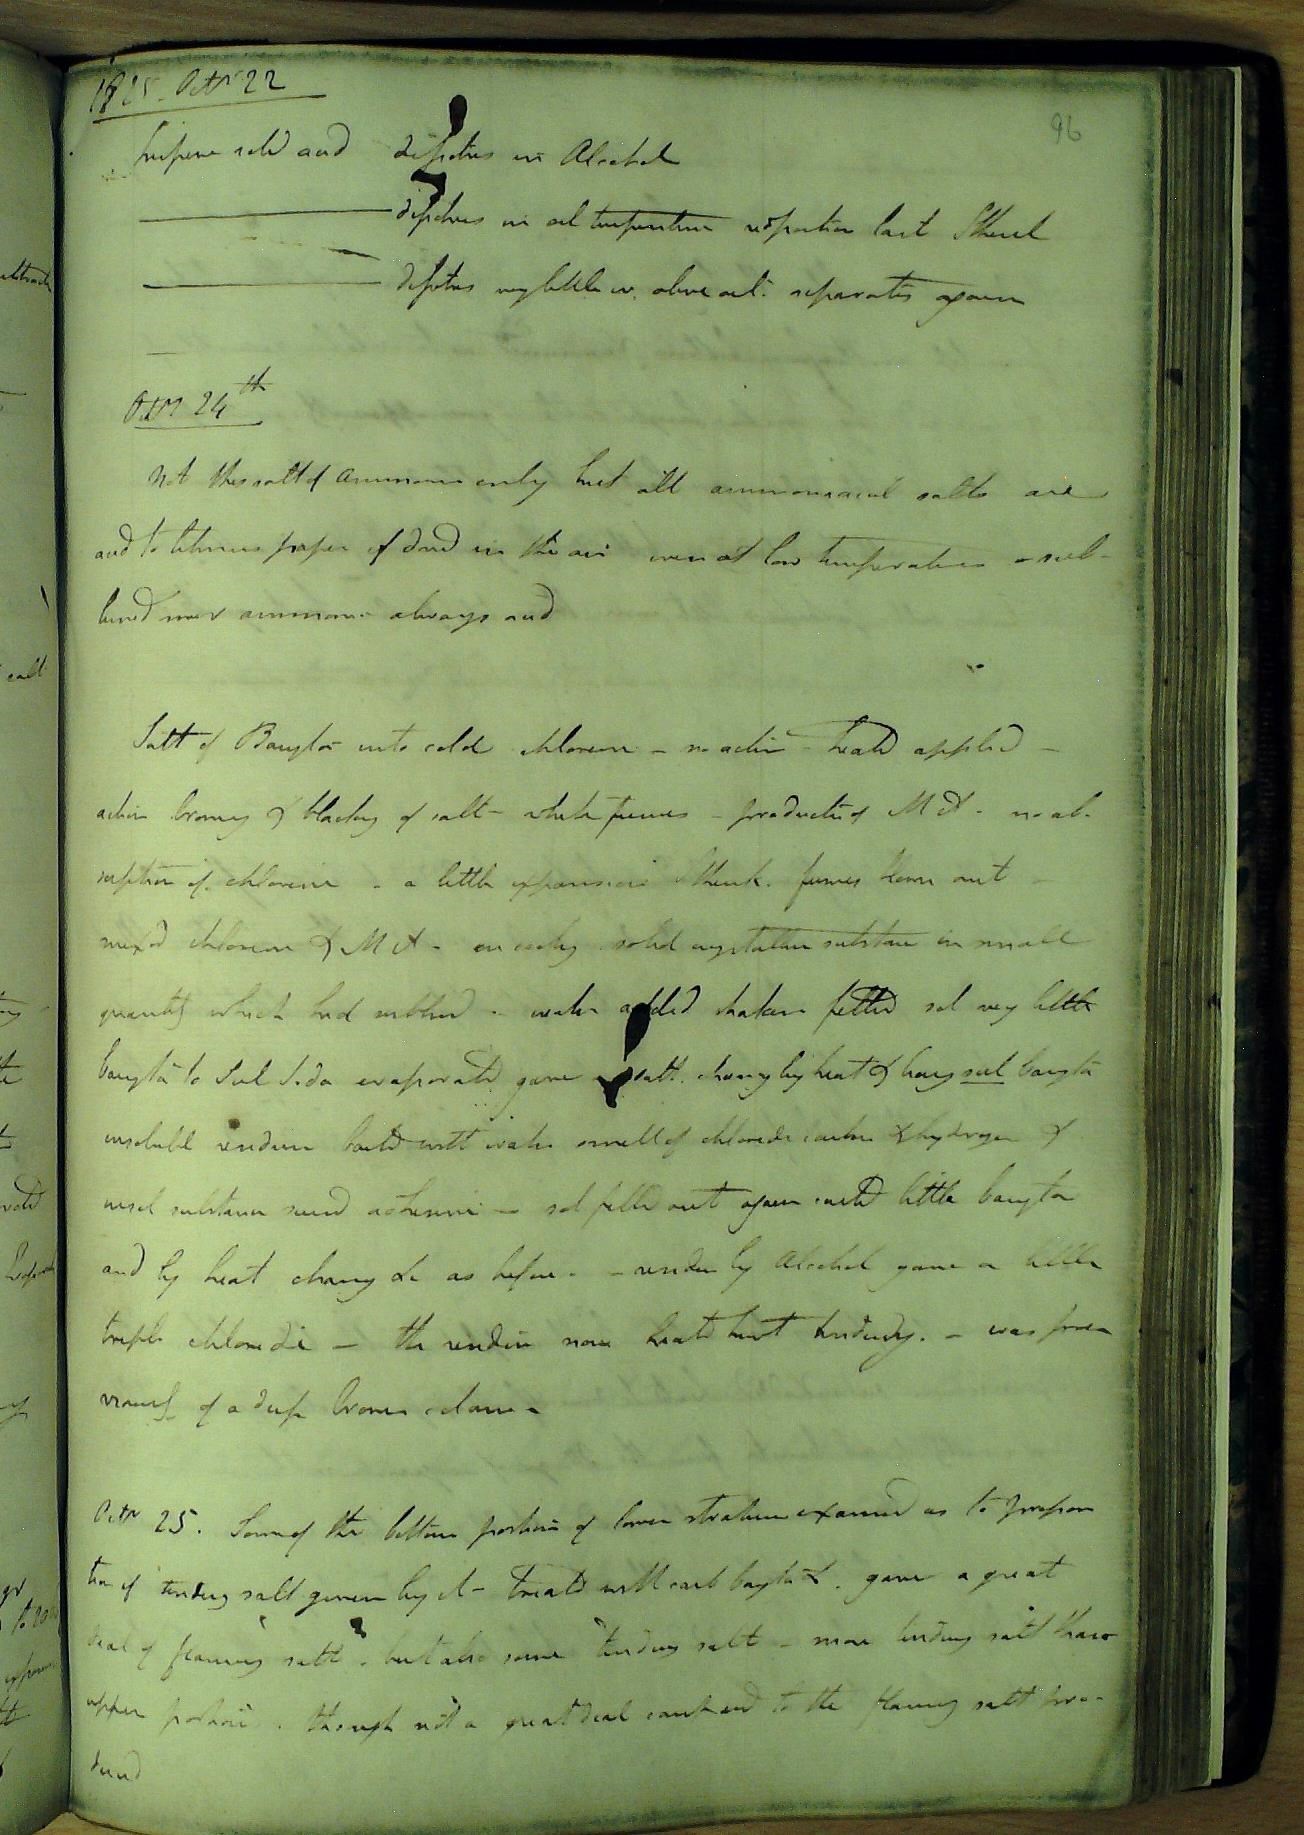 1825. Octr 22
96
solid acid dissolves in Alcohol
dissolves in oil turpentine redposition last I think
dissolves very little in olive oil. separates again
Octr 24th
Not this salt of ammonia only but all ammoniacal salts are
acid to litmus paper if dried in the air even at low temperatures - sub-
limed mur ammonia always acid
Salt of Baryta into cold chlorine - no action - heat applied -
action browning & blacking of salt - white fumes - production of M A - no ab-
sorption of chlorine - a little expansion I think. fumes blown out -
mixed chlorine & M A - on cooling solid crystalline substance in small
quantity which had sublimed - water added shaken filtd sol very little
baryta to Sul Soda evaporated gave salt. charring by heat & leaving sul baryta
insoluble residuum boild with water smell of chloride carbon & hydrogen &
insol substance seemed adhesive - sol filtd out again contd little baryta
and by heat charring &c as before. - residue by Alcohol gave a little
triple chloride - the residue now heated burnt tenderly. -
of a deep brown colour -
Octr 25. Some of the bottom portion of lower stratum examined as to propor
tion of tending salt given by it - treated with carb baryta &. gave a great
deal of flaming salt. but also some tending salt - more tending salt than
upper portion. though not a great deal compared to the flaming salt pro-
duced